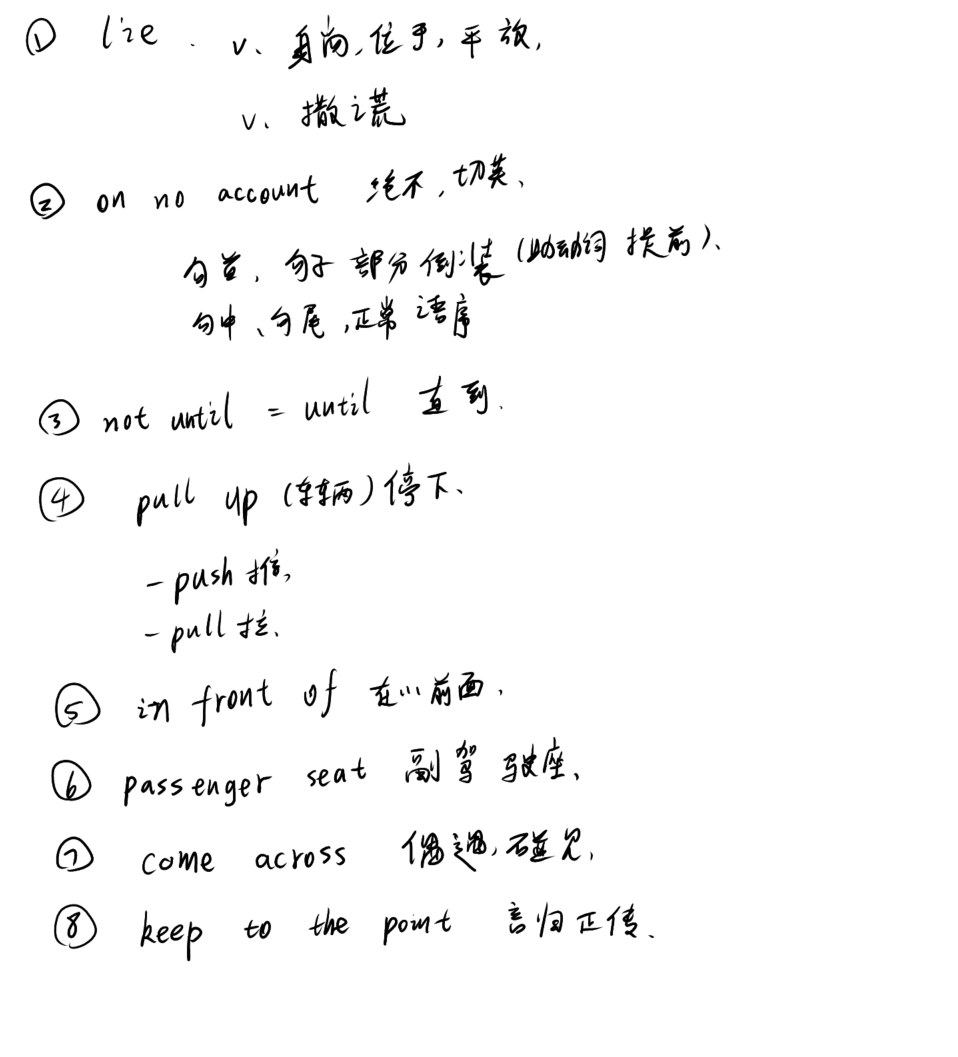 ① lie. v、身向,位于,平放,
v、撒谎
② on no account 绝不,切莫、
句首,句子部分倒装(助动词提前)、
句中、句尾,正常语序
③ not until = until 直到.
④ pull up (车辆)停下、
- push 推,
- pull 拉.
⑤ in front of 在…前面.
⑥ passenger seat 副驾驶座、
⑦ come across 偶遇,碰见,
⑧ keep to the point 言归正传.